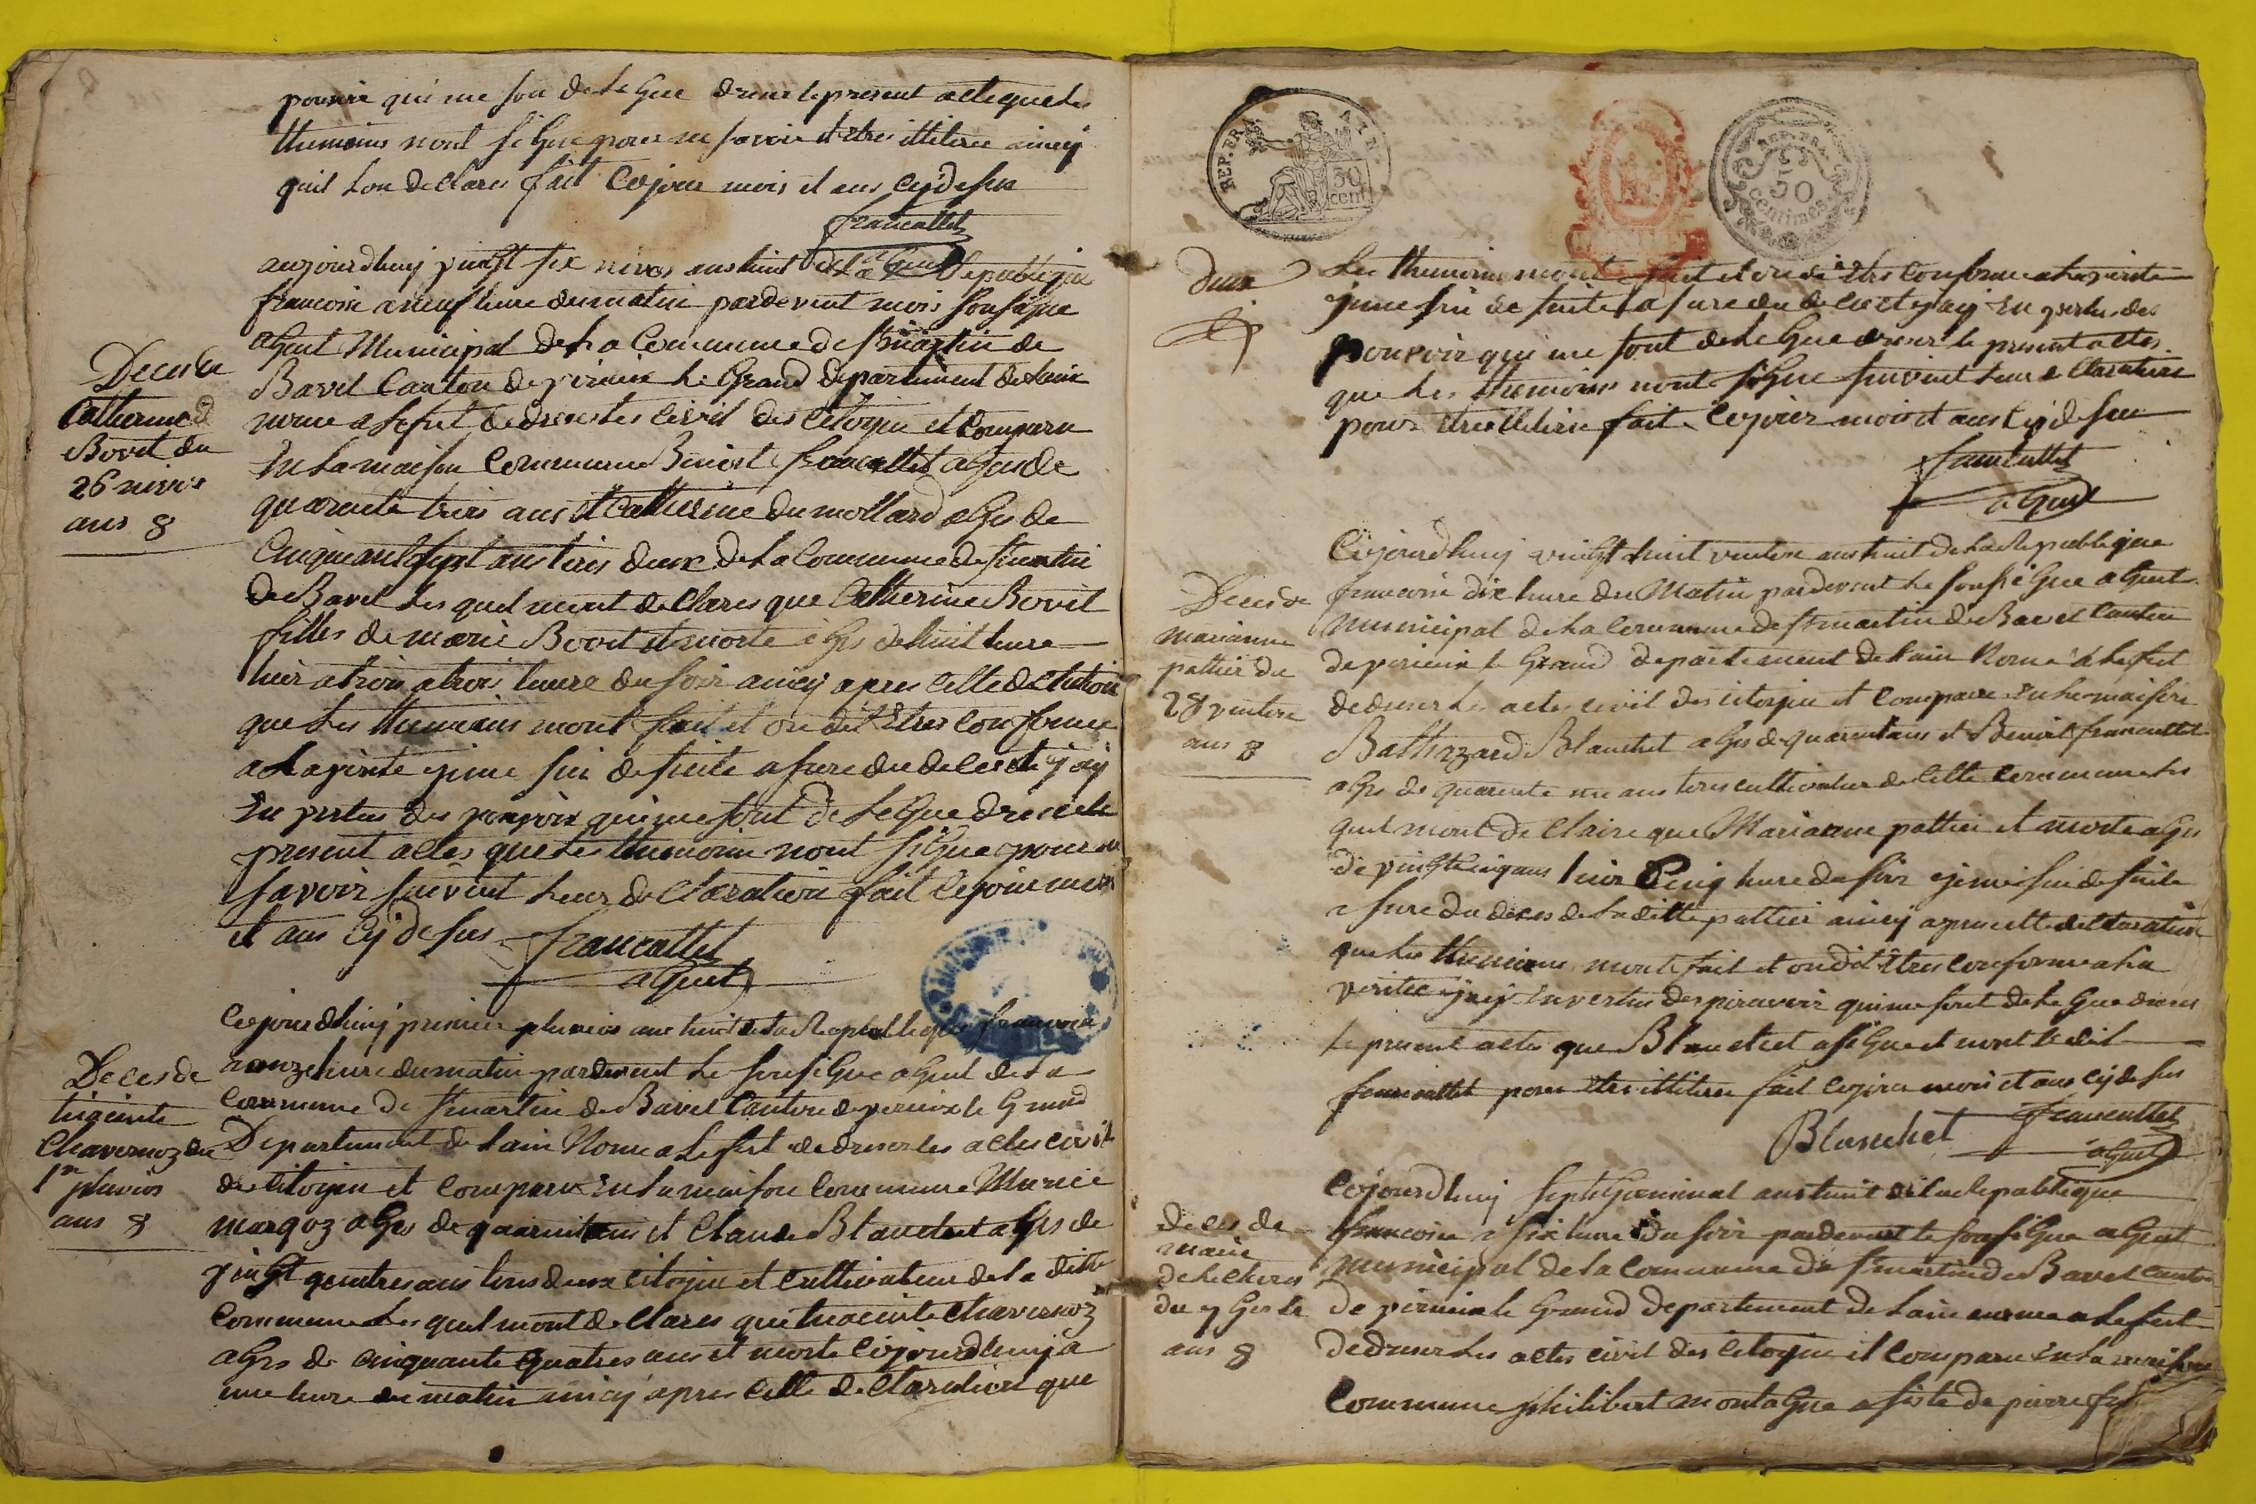 pouvoir qui me son deleGue drese le present acte que les
themoins nont siGne pour ne savoir et etres illiteree aincy
quil lon declares fait Cejour mois et ans cy desus
francallet
aGent
aujourdhuy vinGt six nivos ans huit de la Republique
francoise a neuf heure du matin pardevent mois sousiGne
aGent Municipal de la Commune de st martin de
Bavel Canton de virieux le Grand departement de lain
nome a lefet de dreser les civil des citoyin et Comparu
En la maison Commune Benoist francallet aGes de
quarente trois ans et Catherine dumollard aGes de
Cinquant sept ans tous deux de la Commune de st martin
de Bavel les quel mont declares que Catherine Bovet
filles de marie Bovet et morte aGes de huit heure
hier a trois a trois heure du soir aincy apres cette declaration
que les themoins mont fait et on dit Etres conforme
a la virite ejime sui de suite asure du deces et j'ay
En vertus des pouvoir qui me sont deleGue drese le
present actes que les themoins nont siGne pour ne
savoir suivent leur declaration fait cejour mois
et ans cy desus francallet
aGent
Deces de
Catherine
Bovet du
26 nivos
ans 8
Cejourdhuy premier pluvios ans huit de la Republique francoise
a onze heure du matin pardevent le sousiGne aGent de la
Commune de st martin de Bavel Canton de virieux le Grand
Departement de lain Nome a lefet de dreser les actes civil
des Citoyin et Comparu En la maison Commune Marie
marGoz aGes de quarent ans et Claude Blanchet aGes de
vinGt quatres ans tous deux citoyin et Cultivateur de la ditte
Commune les quel mont declares que hiacinte Chavernoz
aGes de cinquante quatres ans et morte Cejourdhuy a
une heure du matin aincy apres cette declaration que
Deces de
hiacinte
Chavernoz du
1er pluvios
ans 8
REP. FRA.
50
cent.
REP. FRA.
50
centimes
deux
Les themoins mont fait et on dit Etres Conforme a la virite
ejime sui de suite asure du deces et jay En vertus des
pouvoir qui me sont deleGue dreser le present actes
que les themoins nont siGne suivent leur declaration
pour etre illiteree fait Cejour mois et ans cy desus
francallet
aGent
Deces de
marianne
pattier du
28 ventose
ans 8
Cejourdhuy vinGt huit ventose ans huit de la Republique
francoise dix heure du Matin pardevent le sousiGne aGent
Municipal de la Commune de st martin de Bavel Canton
de virieux le Grand departement de lain Nome a lefet
de dreser les actes civil des citoyin et Comparu En la maison
Balthazard Blanchet aGes de quarent ans et Benoist francallet
aGes de quarente un ans tous cultivateur de cette Commune les
quel mont declaire que Marianne pattier et morte aGes
de vinGt cinq ans hier a Cinq heure du soir ejime sui de suite
asure du deces de la ditte pattier aincy apres cette declaration
que les themoins mont fait et on dit Etres Conforme a la
verite ejay En vertus des pouvoir qui me sont deleGue dreser
le present actes que Blanchet a siGne et nont le dit
francallet pour etre illiteree fait Cejour mois et ans cy desus
Blanchet francallet
aGent
Deces de
marie
du 7 Ger
ans 8
Cejourdhuy sept Germinal ans huit de la Republique
francoise a six heure du soir pardevent le sousiGne aGent
Municipal de la Commune de st martin de Bavel Canton
de virieux le Grand departement de lain nome a lefet
de dreser les actes civil des citoyin et Comparu En la maison
Commune philibert montaGne asiste de pierre